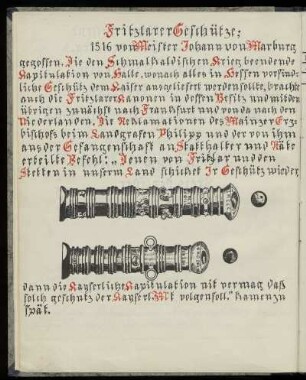 Fritzlarer Geschütze:
1516 von Meister Johann von Marburg
gegossen. Die den Schmalkaldischen Krieg beendende
Kapitulation von Halle, wonach alles in Hessen vorfind-
liche Geschütz dem Kaiser ausgeliefert werden sollte, brachte
auch die Fritzlarer Kanonen in dessen Besitz und mit den
übrigen zunächst nach Frankfurt und von da nach den
Niederlanden. Die Reklamationen des Mainzer Erz-
bischofs beim Landgrafen Philipp und der von ihm
aus der Gefangenschaft an Statthalter und Räte
erteilte Befehl: „Denen von Fritzlar und den
Stetten in unserm Land schicket Ir Geschütz wieder
dann die Kayserliche Kapitulation nit vermag, daß
solch geschutz der Kayserl. Mt volgen soll." kamen zu
spät.